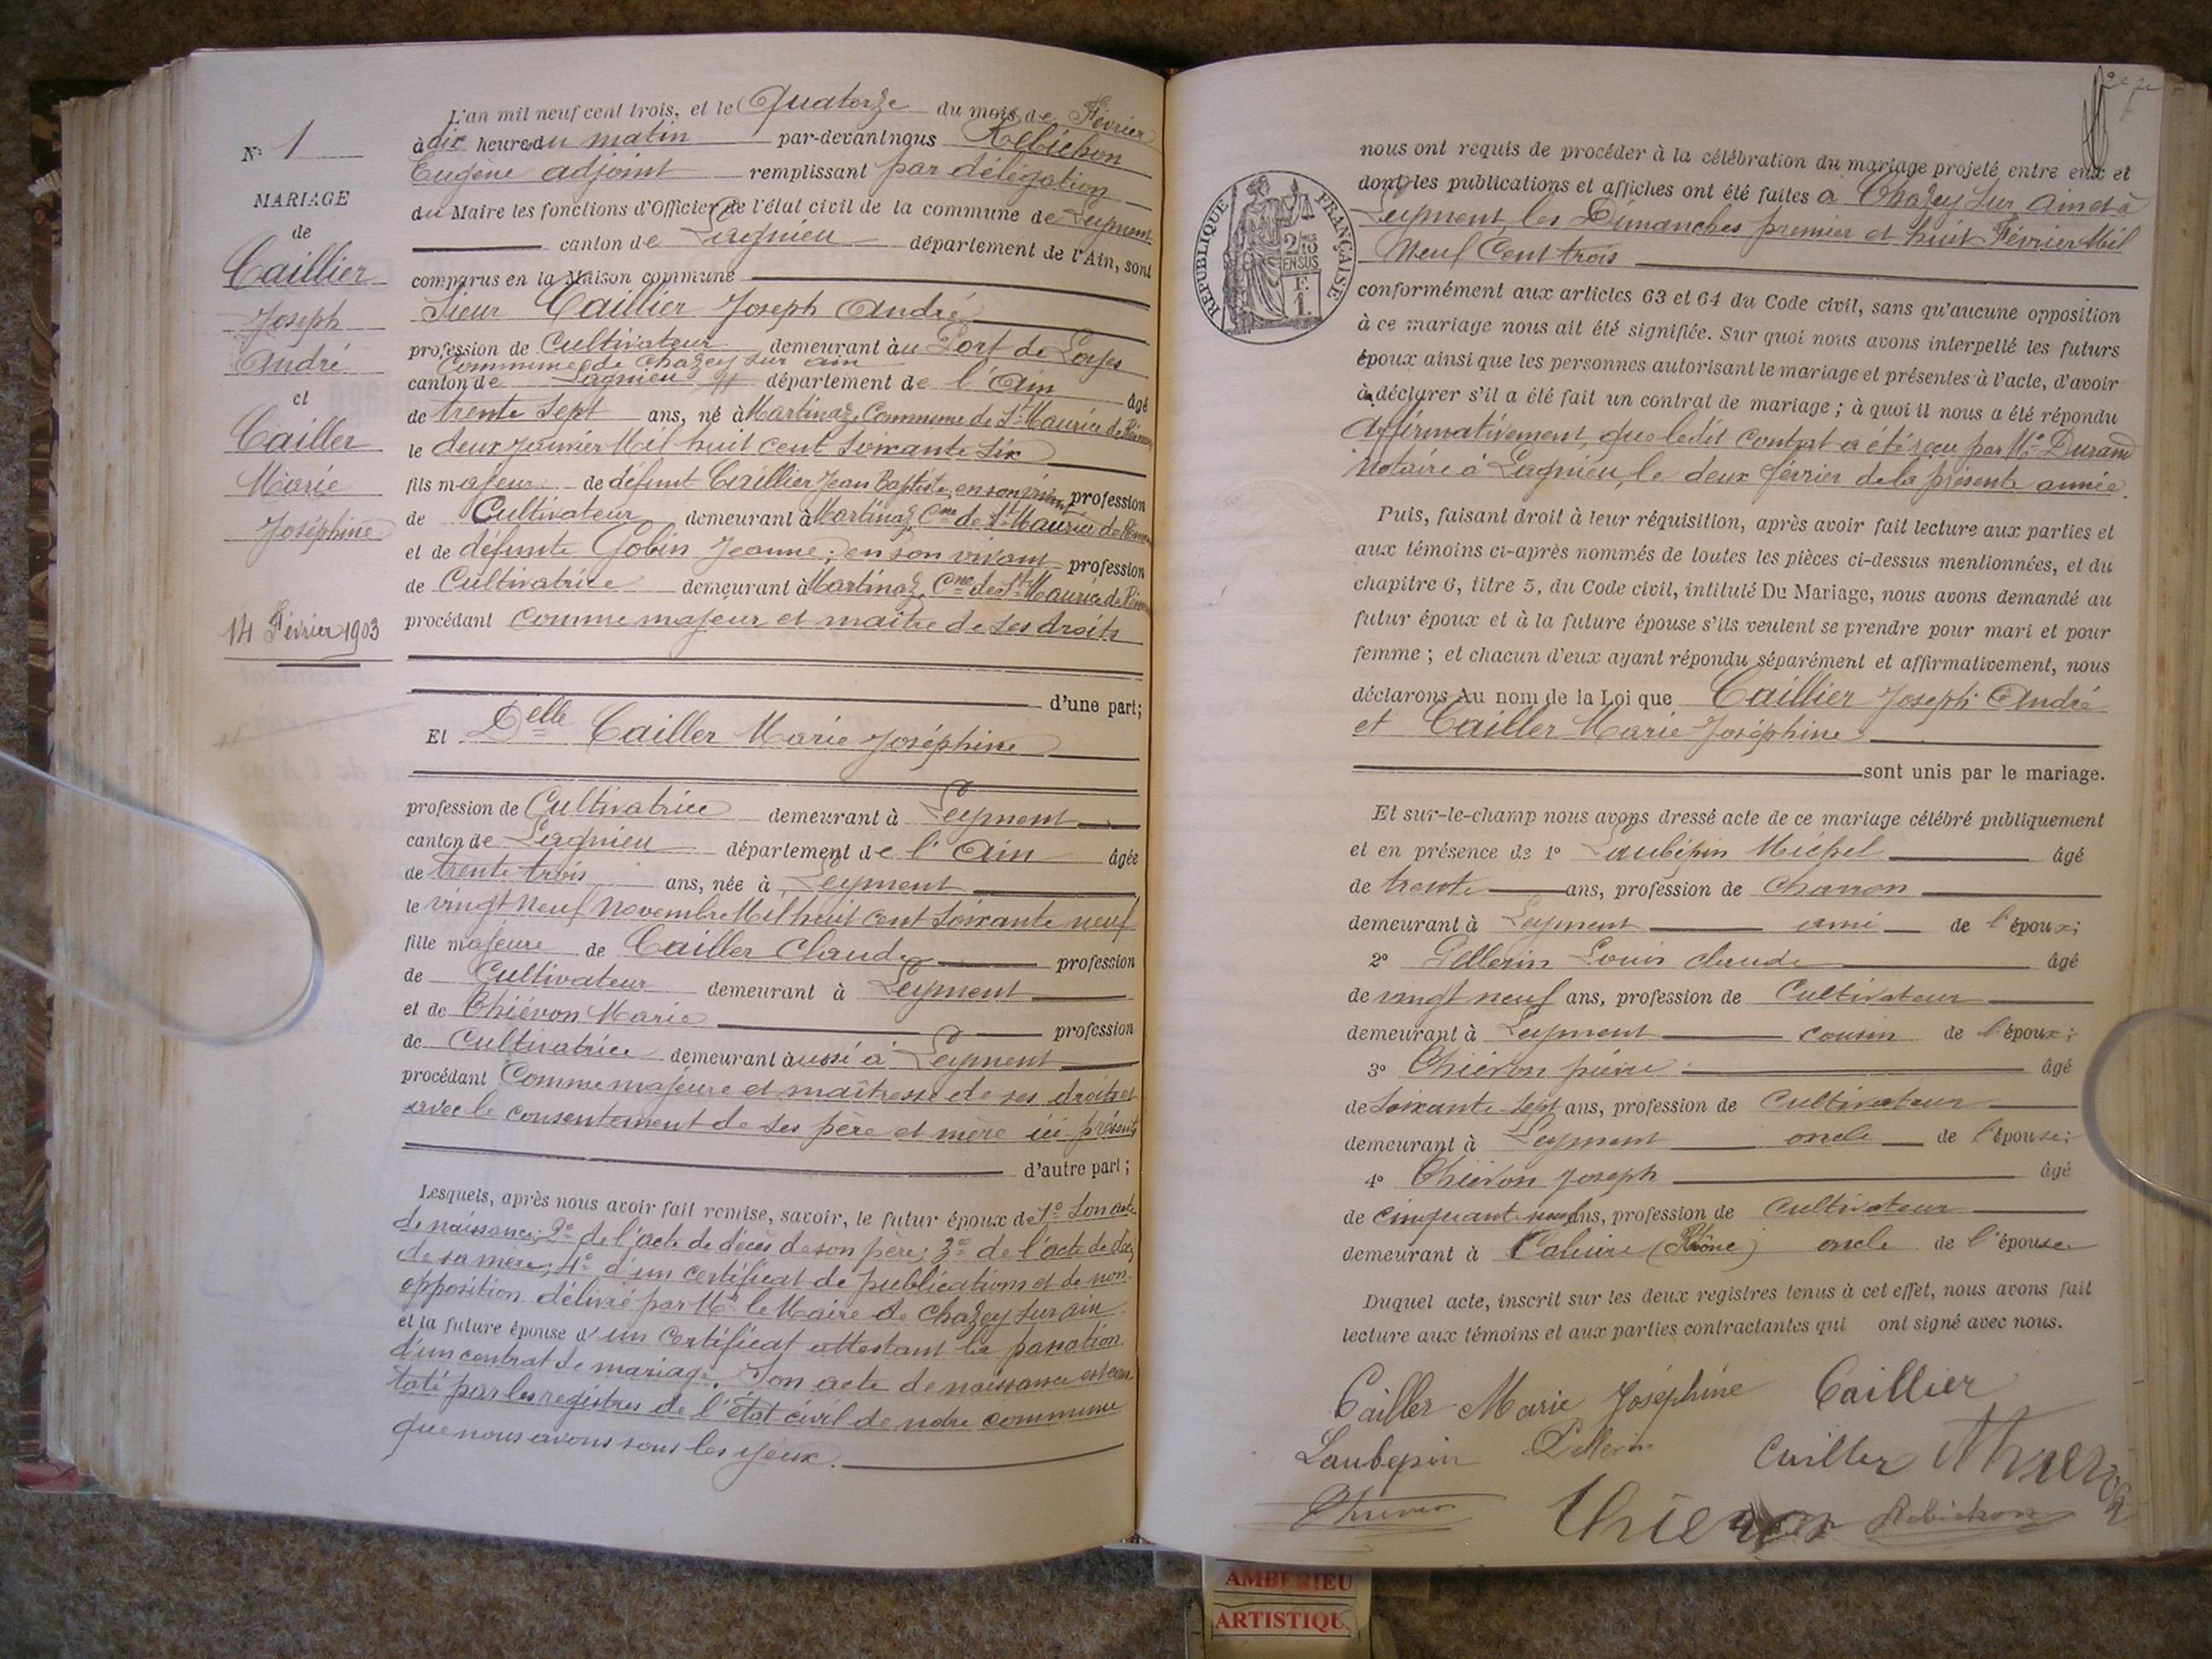 N° 1
MARIAGE
de
Caillier
Joseph
André
et
Cailler
Marie
Joséphine
14 Février 1903
L'an mil neuf cent trois, et le Quatorze du mois de Février
à dix heures du matin par-devant nous Rebichon
Eugène adjoint remplissant par délégation
du Maire les fonctions d'Officier de l'état civil de la commune de Leyment
canton de Lagnieu département de l'Ain, sont
comparus en la Maison commune
Sieur Caillier Joseph André
profession de Cultivateur demeurant au Port de Loyes
Commune de Chazey sur ain
canton de Lagnieu département de l'Ain âgé
de trente sept ans, né à Martinaz, Commune de St Maurice de Rémens
le deux janvier Mil huit cent soixante six
fils majeur de défunt Caillier Jean Baptiste, en son vivant profession
de Cultivateur demeurant à Martinaz, Cne de St Maurice de Rémens
et de défunte Gobin Jeanne, en son vivant profession
de Cultivatrice demeurant à Martinaz, Cne de St Maurice de Rémens
procédant comme majeur et maître de ses droits
d'une part;
Et Delle Cailler Marie Joséphine
profession de Cultivatrice demeurant à Leyment
canton de Lagnieu département de l'Ain âgée
de trente trois ans, née à Leyment
le vingt neuf novembre Mil huit cent soixante neuf
fille majeure de Cailler Claude profession
de Cultivateur demeurant à Leyment
et de Thiévon Marie profession
de Cultivatrice demeurant aussi à Leyment
procédant Comme majeure et maîtresse de ses droits et
avec le consentement de ses père et mère ici présents
d'autre part;
Lesquels, après nous avoir fait remise, savoir, le futur époux de 1° son acte
de naissance; 2° de l'acte de décès de son père; 3° de l'acte de décès
de sa mère; 4° d'un certificat de publications et de non
opposition délivré par Mr le Maire de Chazey sur ain
et la future épouse d'un certificat attestant la passation
d'un contrat de mariage. Son acte de naissance est cons
taté par les registres de l'état civil de notre commune
que nous avons sous les yeux.
RÉPUBLIQUE FRANÇAISE
2/10
EN SUS
F.
1.
nous ont requis de procéder à la célébration du mariage projeté entre eux et
dont les publications et affiches ont été faites à Chazey sur Ain et à
Leyment, les Dimanches premier et huit Février Mil
Neuf Cent trois
conformément aux articles 63 et 64 du Code civil, sans qu'aucune opposition
à ce mariage nous ait été signifiée. Sur quoi nous avons interpellé les futurs
époux ainsi que les personnes autorisant le mariage et présentes à l'acte, d'avoir
à déclarer s'il a été fait un contrat de mariage; à quoi il nous a été répondu
Affirmativement, que ledit contrat a été reçu par Me Durand
Notaire à Lagnieu, le deux février de la présente année.
Puis, faisant droit à leur réquisition, après avoir fait lecture aux parties et
aux témoins ci-après nommés de toutes les pièces ci-dessus mentionnées, et du
chapitre 6, titre 5, du Code civil, intitulé Du Mariage, nous avons demandé au
futur époux et à la future épouse s'ils veulent se prendre pour mari et pour
femme; et chacun d'eux ayant répondu séparément et affirmativement, nous
déclarons Au nom de la Loi que Caillier Joseph André
et Cailler Marie Joséphine
sont unis par le mariage.
Et sur-le-champ nous avons dressé acte de ce mariage célébré publiquement
et en présence de 1° Laubépin Michel âgé
de trente ans, profession de Charron
demeurant à Leyment ami de l'époux;
2° Pellerin Louis Claude âgé
de vingt neuf ans, profession de Cultivateur
demeurant à Leyment cousin de l'époux;
3° Thiévon pierre âgé
de Soixante-sept ans, profession de Cultivateur
demeurant à Leyment oncle de l'épouse;
4° Thiévon Joseph âgé
de cinquante neuf ans, profession de Cultivateur
demeurant à Caluire (Rhône) oncle de l'épouse
Duquel acte, inscrit sur les deux registres tenus à cet effet, nous avons fait
lecture aux témoins et aux parties contractantes qui ont signé avec nous.
Cailler Marie Joséphine Caillier
Laubepin Pellerin Cailler Thievon
Thievon Thievon Rebichon
AMBERIEU
ARTISTIQU